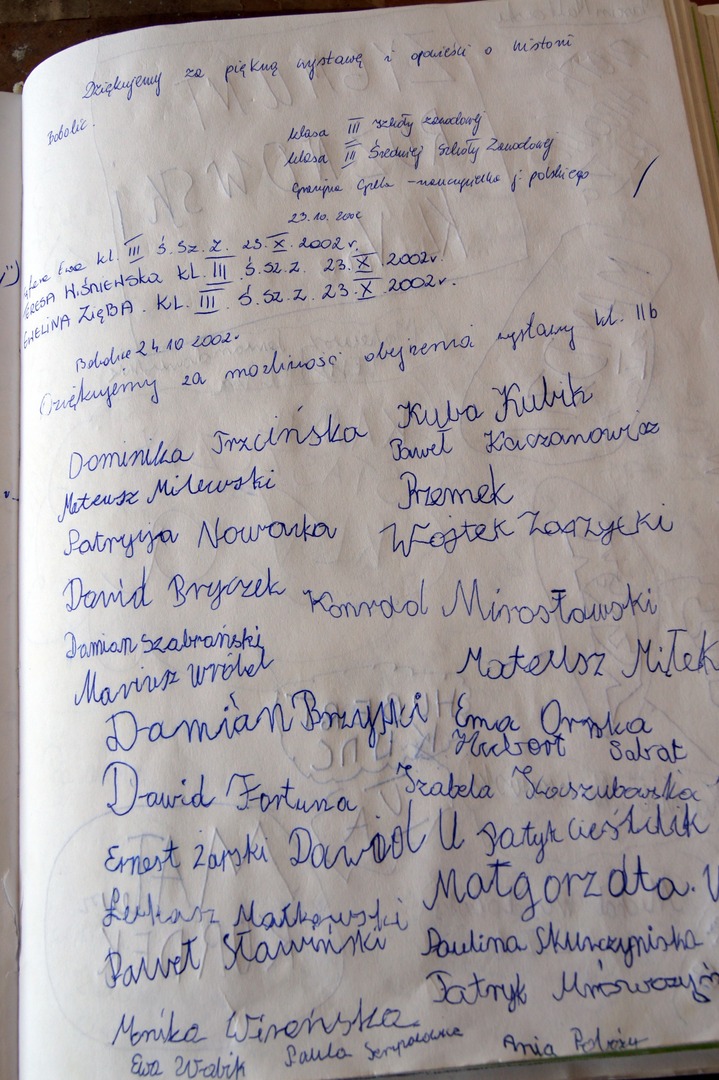 Dziękujemy za piękną wystawę i opowieści o historii
Bobolic.
klasa III szkoły zawodowej
klasa III Średniej Szkoły Zawodowej
Grażyna nauczycielka j. polskiego
23.10.2002
Ewa kl. III Ś. Sz. Z. 23. X. 2002 r.
TERESA WIŚNIEWSKA KL. III Ś. SZ. Z. 23. X 2002r.
EWELINA ZIĘBA. KL. III Ś. SZ. Z. 23. X. 2002r.
Bobolice 24.10 2002r
Dziękujemy za możliwość obejrzenia wystawy kl. IIb
Dominika Trzcińska Kuba Kubik
Mateusz Milewski Paweł Kaczanowicz
Przemek
Patrycja Nowacka Wojtek Zarzycki
Dawid Bryczek Konrad Mirosławski
Damian Szabrański
Mariusz Wróbel Mateusz Miłek
Damian Brzyski Ema Orzska
Hubert Sabat
Dawid Fortuna Izabela Kaszubowska
Ernest Żarski Dawid U Patyk Cieślilik
Łukasz Małkowski Małgorzata. W
Paweł Sławiński Paulina Skurczyńska
Patryk
Monika Wirońska
Ewa Wabik Paula Ania